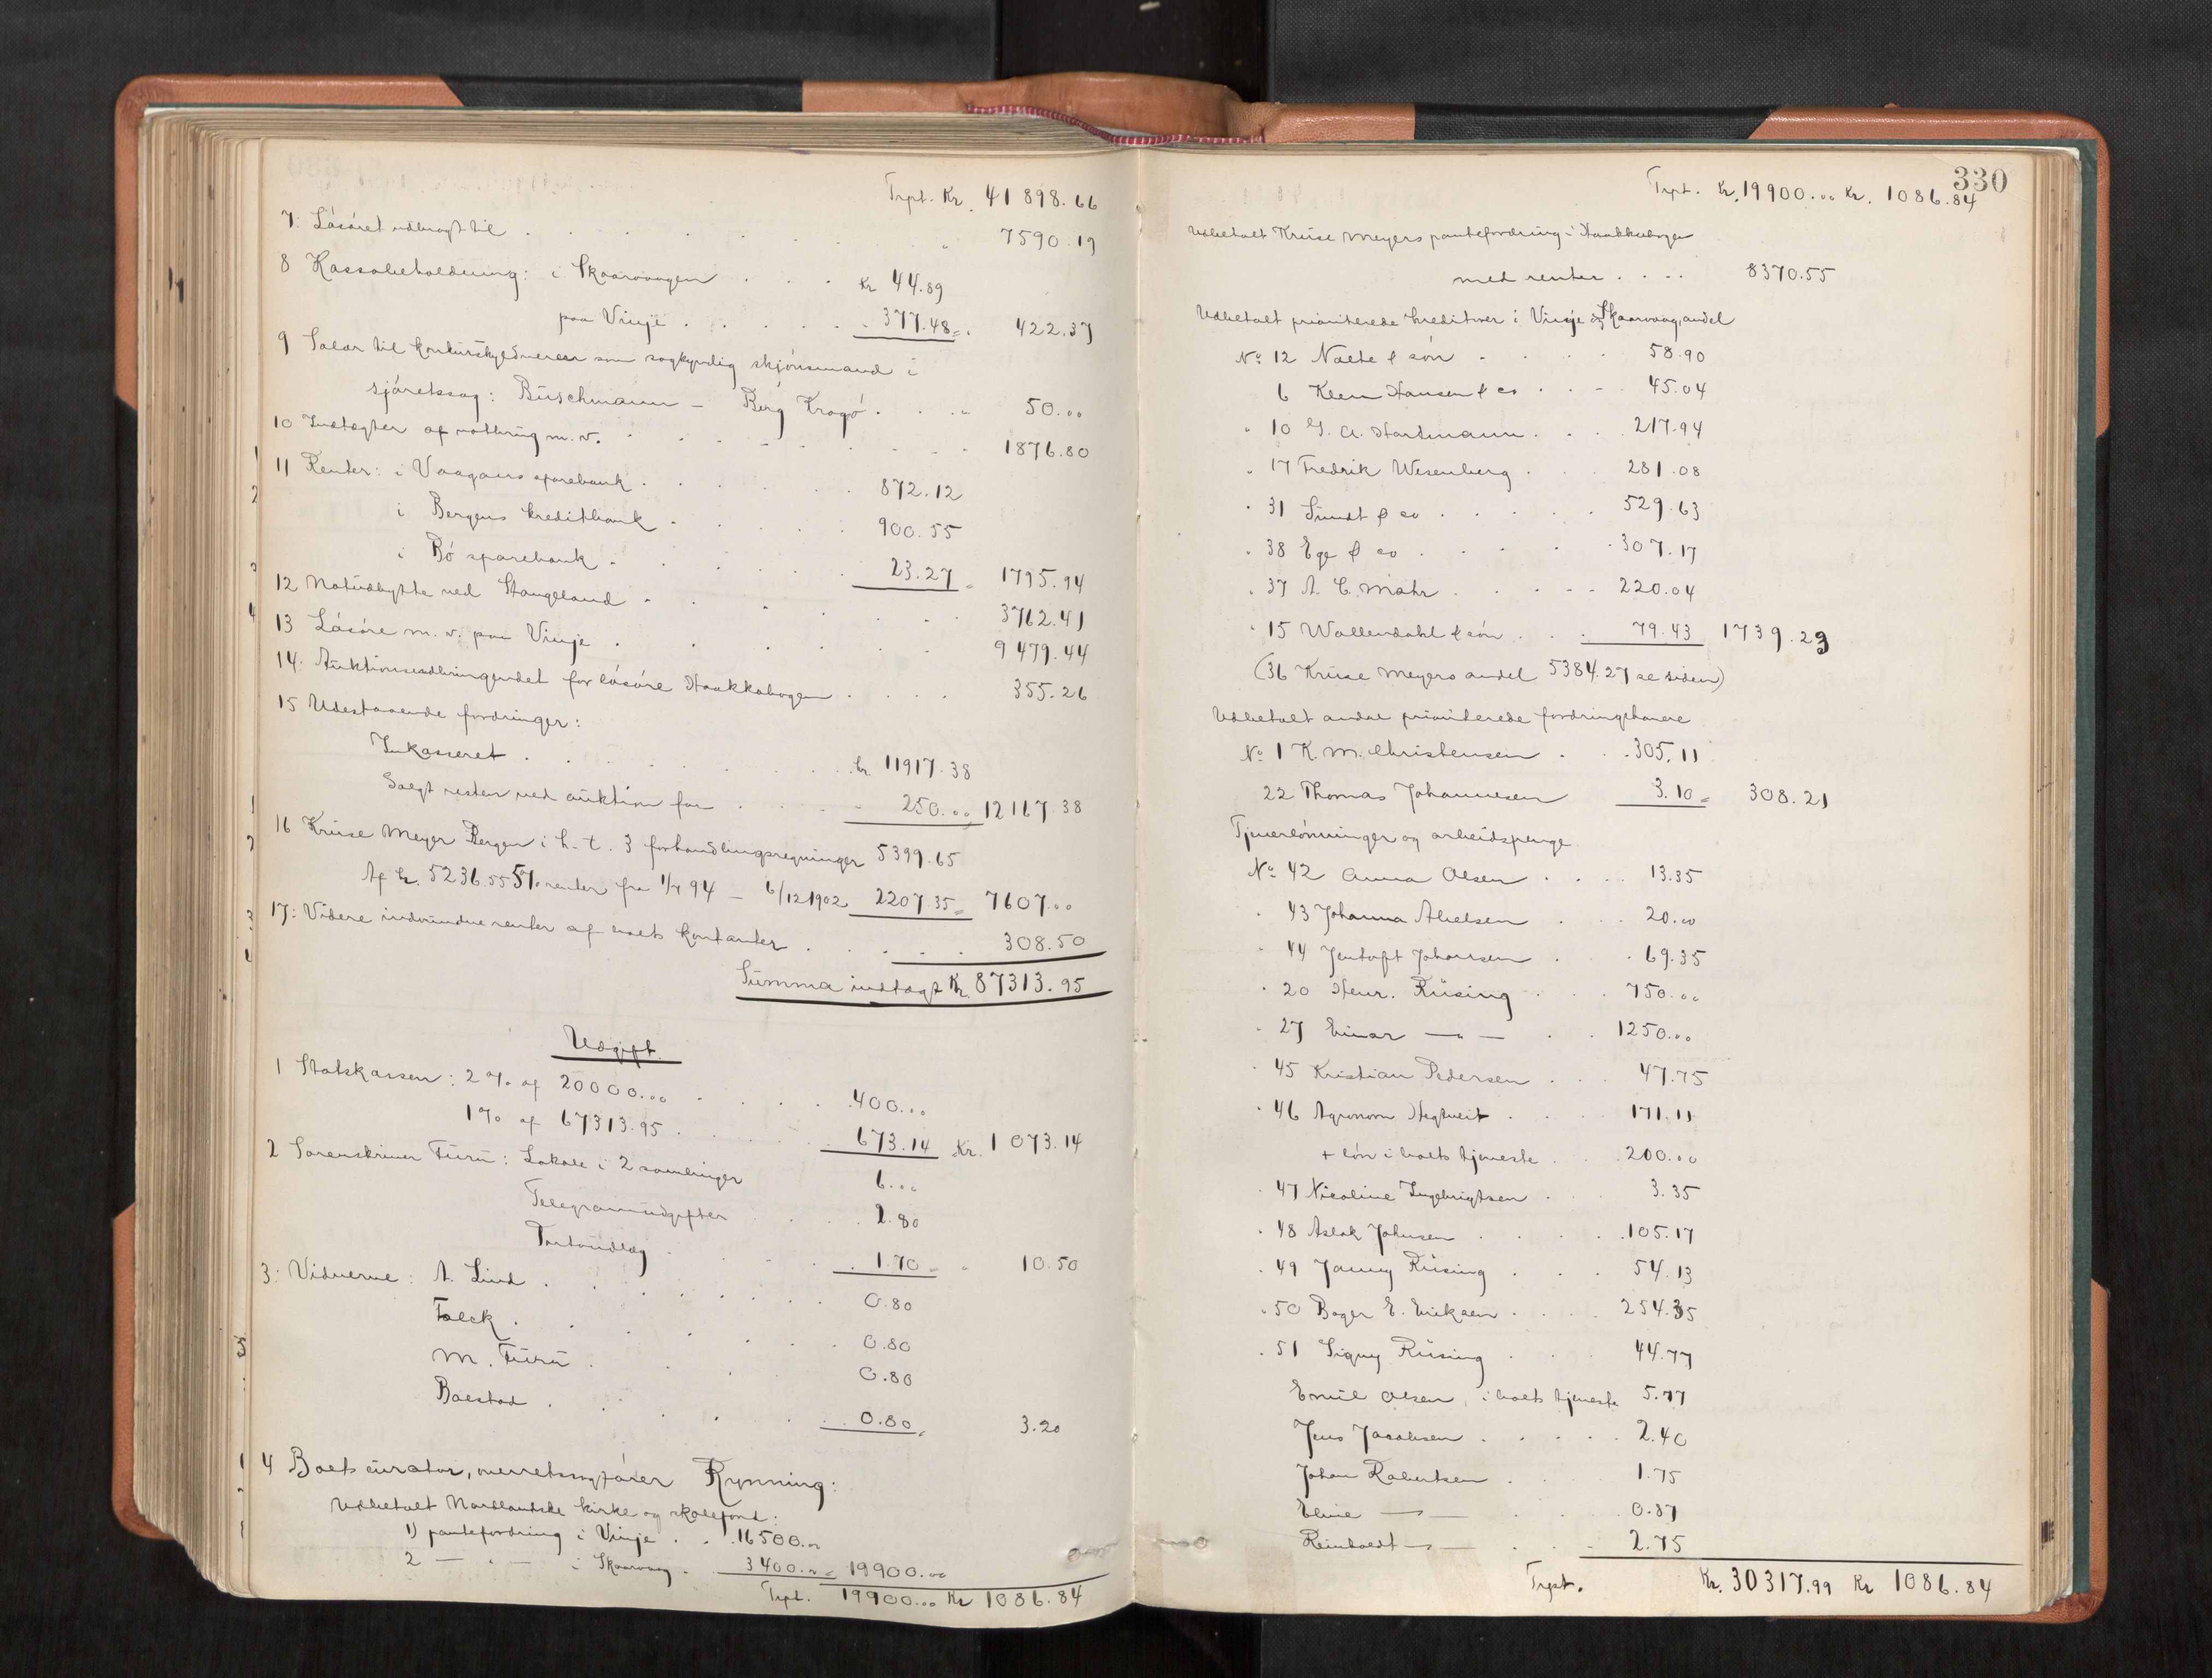 Trpt. Kr. 41 898.66
7. Lösöret udbragt til . . . . " 7590.17
8 Kassabeholdning: i Skaarvaagen . . . Kr 44.89
paa Vinje . . . . 377.48 = . 422.37
9 Salær til konkursskyldneren som sagkyndig skjönsmand i
sjöretssag: Buschmann – Berg Kragö . . . " 50.00
10 Indtægter af notbrug m. v. . . . . 1876.80
11 Renter: i Vaagans sparebank . . . . 872.12
i Bergens kreditbank . . . . 900.55
i Bö sparebank . . . . 23.27 = 1795.94
12 Notudbytte ved Stangeland . . . . 3762.41
13 Lösöre m. v. paa Vinje . . . . 9479.44
14. Auktionsudbringendet for lösöre Haakkabogen . . . . 355.26
15 Udestaaende fordringer:
Inkasseret . . . . kr. 11917.38
Solgt resten ved auktion for . . . . 250.00 12167.38
16 Kruse Meyer Bergen i h. t. 3 forhandlingsregninger 5399.65
Af kr. 5236.55 5% renter fra 1/7 94 – 6/12 1902 2207.35 = 7607.00
17: Videre indvundne renter af boets kontanter . . . . 308.50
Summa indtægt Kr. 87313.95
Udgift.
1 Statskassen: 2 % af 20000.00 . . . . 400.00
1% af 67313.95 . . . . 673.14 Kr. 1073.14
2 Sorenskriver Furu: Lokale i 2 samlinger 6.00
Telegramudgifter . . . 2.80
Portoudlæg . . . . 1.70 = " 10.50
3: Vidnerne: A. Lind . . . . 0.80
Falck . . . . 0.80
M. Furu . . . . 0.80
Balstad . . . . 0.80 = 3.20
4 Boets curator, overretssagförer Rynning:
Udbetalt Nordlandske kirke og skolefond:
1) pantefordring i Vinje . . 16500.00
2 — " — i Skaarvaag . 3400.00 = 19900.00
Trpt. 19900.00 Kr 1086.84
330
Trpt. Kr. 19900.00 Kr. 1086.84
Udbetalt Kruse Meyers pantefordring i Haakkabogen
med renter . . . . 8370.55
Udbetalt prioriterede kreditorer i Vinje og Skaarvaag, andel
No 12 Nolte & sön . . . . 58.90
6 Klem Hansen & co . . . 45.04
" 10 G. A. Hartmann . . . 217.94
" 17 Fredrik Wesenberg . . . 281.08
" 31 Sundt & co . . . . 529.63
" 38 Ege & co . . . . 307.17
" 37 A. C. Mohr . . . . 220.04
" 15 Wallendahl & sön . . . 79.43 1739.23
(36 Kruse Meyers andel 5384.27 se siden)
Udbetalt andre prioriterede fordringshavere
No 1 K. M. Christensen . . 305.11
22 Thomas Johannesen 3.10 = 308.21
Tjenerlönninger og arbeidspenge
No 42 Anna Olsen . . . . 13.35
" 43 Johanna Abelsen . . . 20.00
" 44 Jentoft Johansen . . 69.35
" 20 Henr. Rüsing . . . 750.00
" 27 Einar — " — . . 1250.00
" 45 Kristian Pedersen . . . 47.75
" 46 Agronom Hegtveit . . . 171.11
+ lön i boets tjeneste . . 200.00
" 47 Nicoline Ingebrigtsen . . 3.35
" 48 Aslak Johnsen . . . . 105.17
" 49 Janny Rüsing . . . 54.13
" 50 Bager E. Eriksen . . . 254.35
" 51 Signy Rüsing . . . 44.77
Emil Olsen, i boets tjeneste 5.77
Jens Jacobsen . . . . 2.40
Johan Robertsen . . . 1.75
Eline — " — . . . 0.87
Reinholdt — " — . . . 2.75
Trpt. Kr. 30317.99 Kr 1086.84